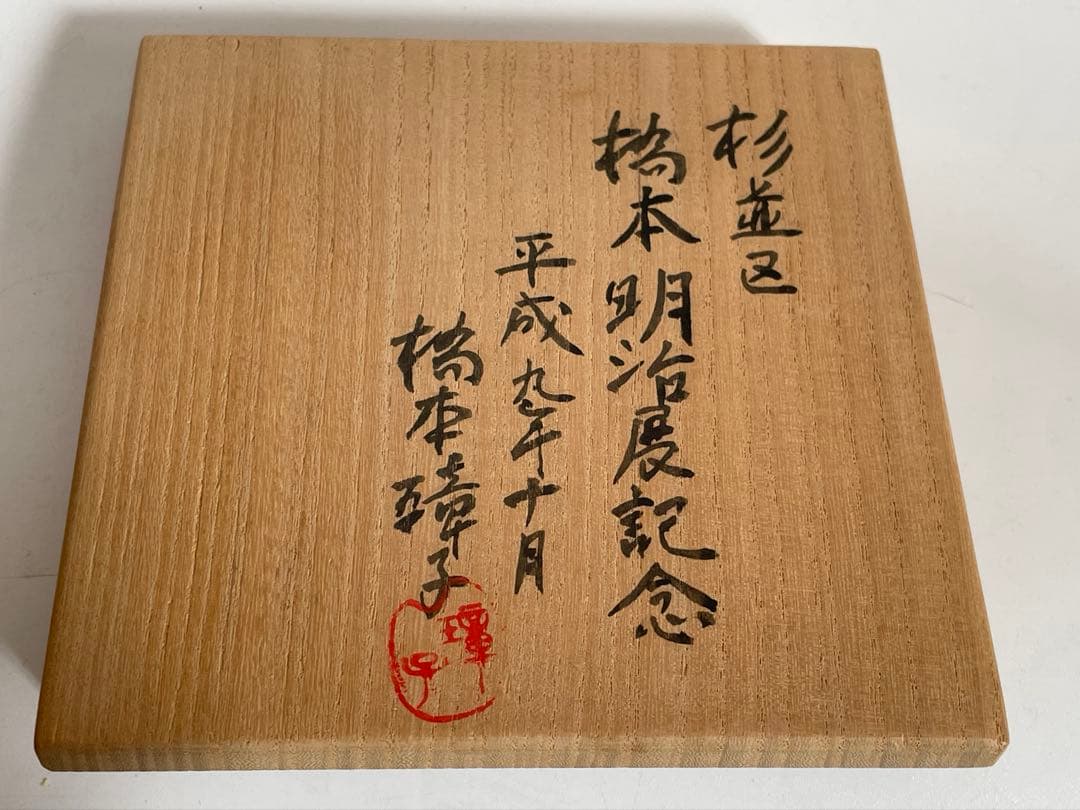 杉並区
橋本明治展記念
平成九年十月
橋本璋子
璋子